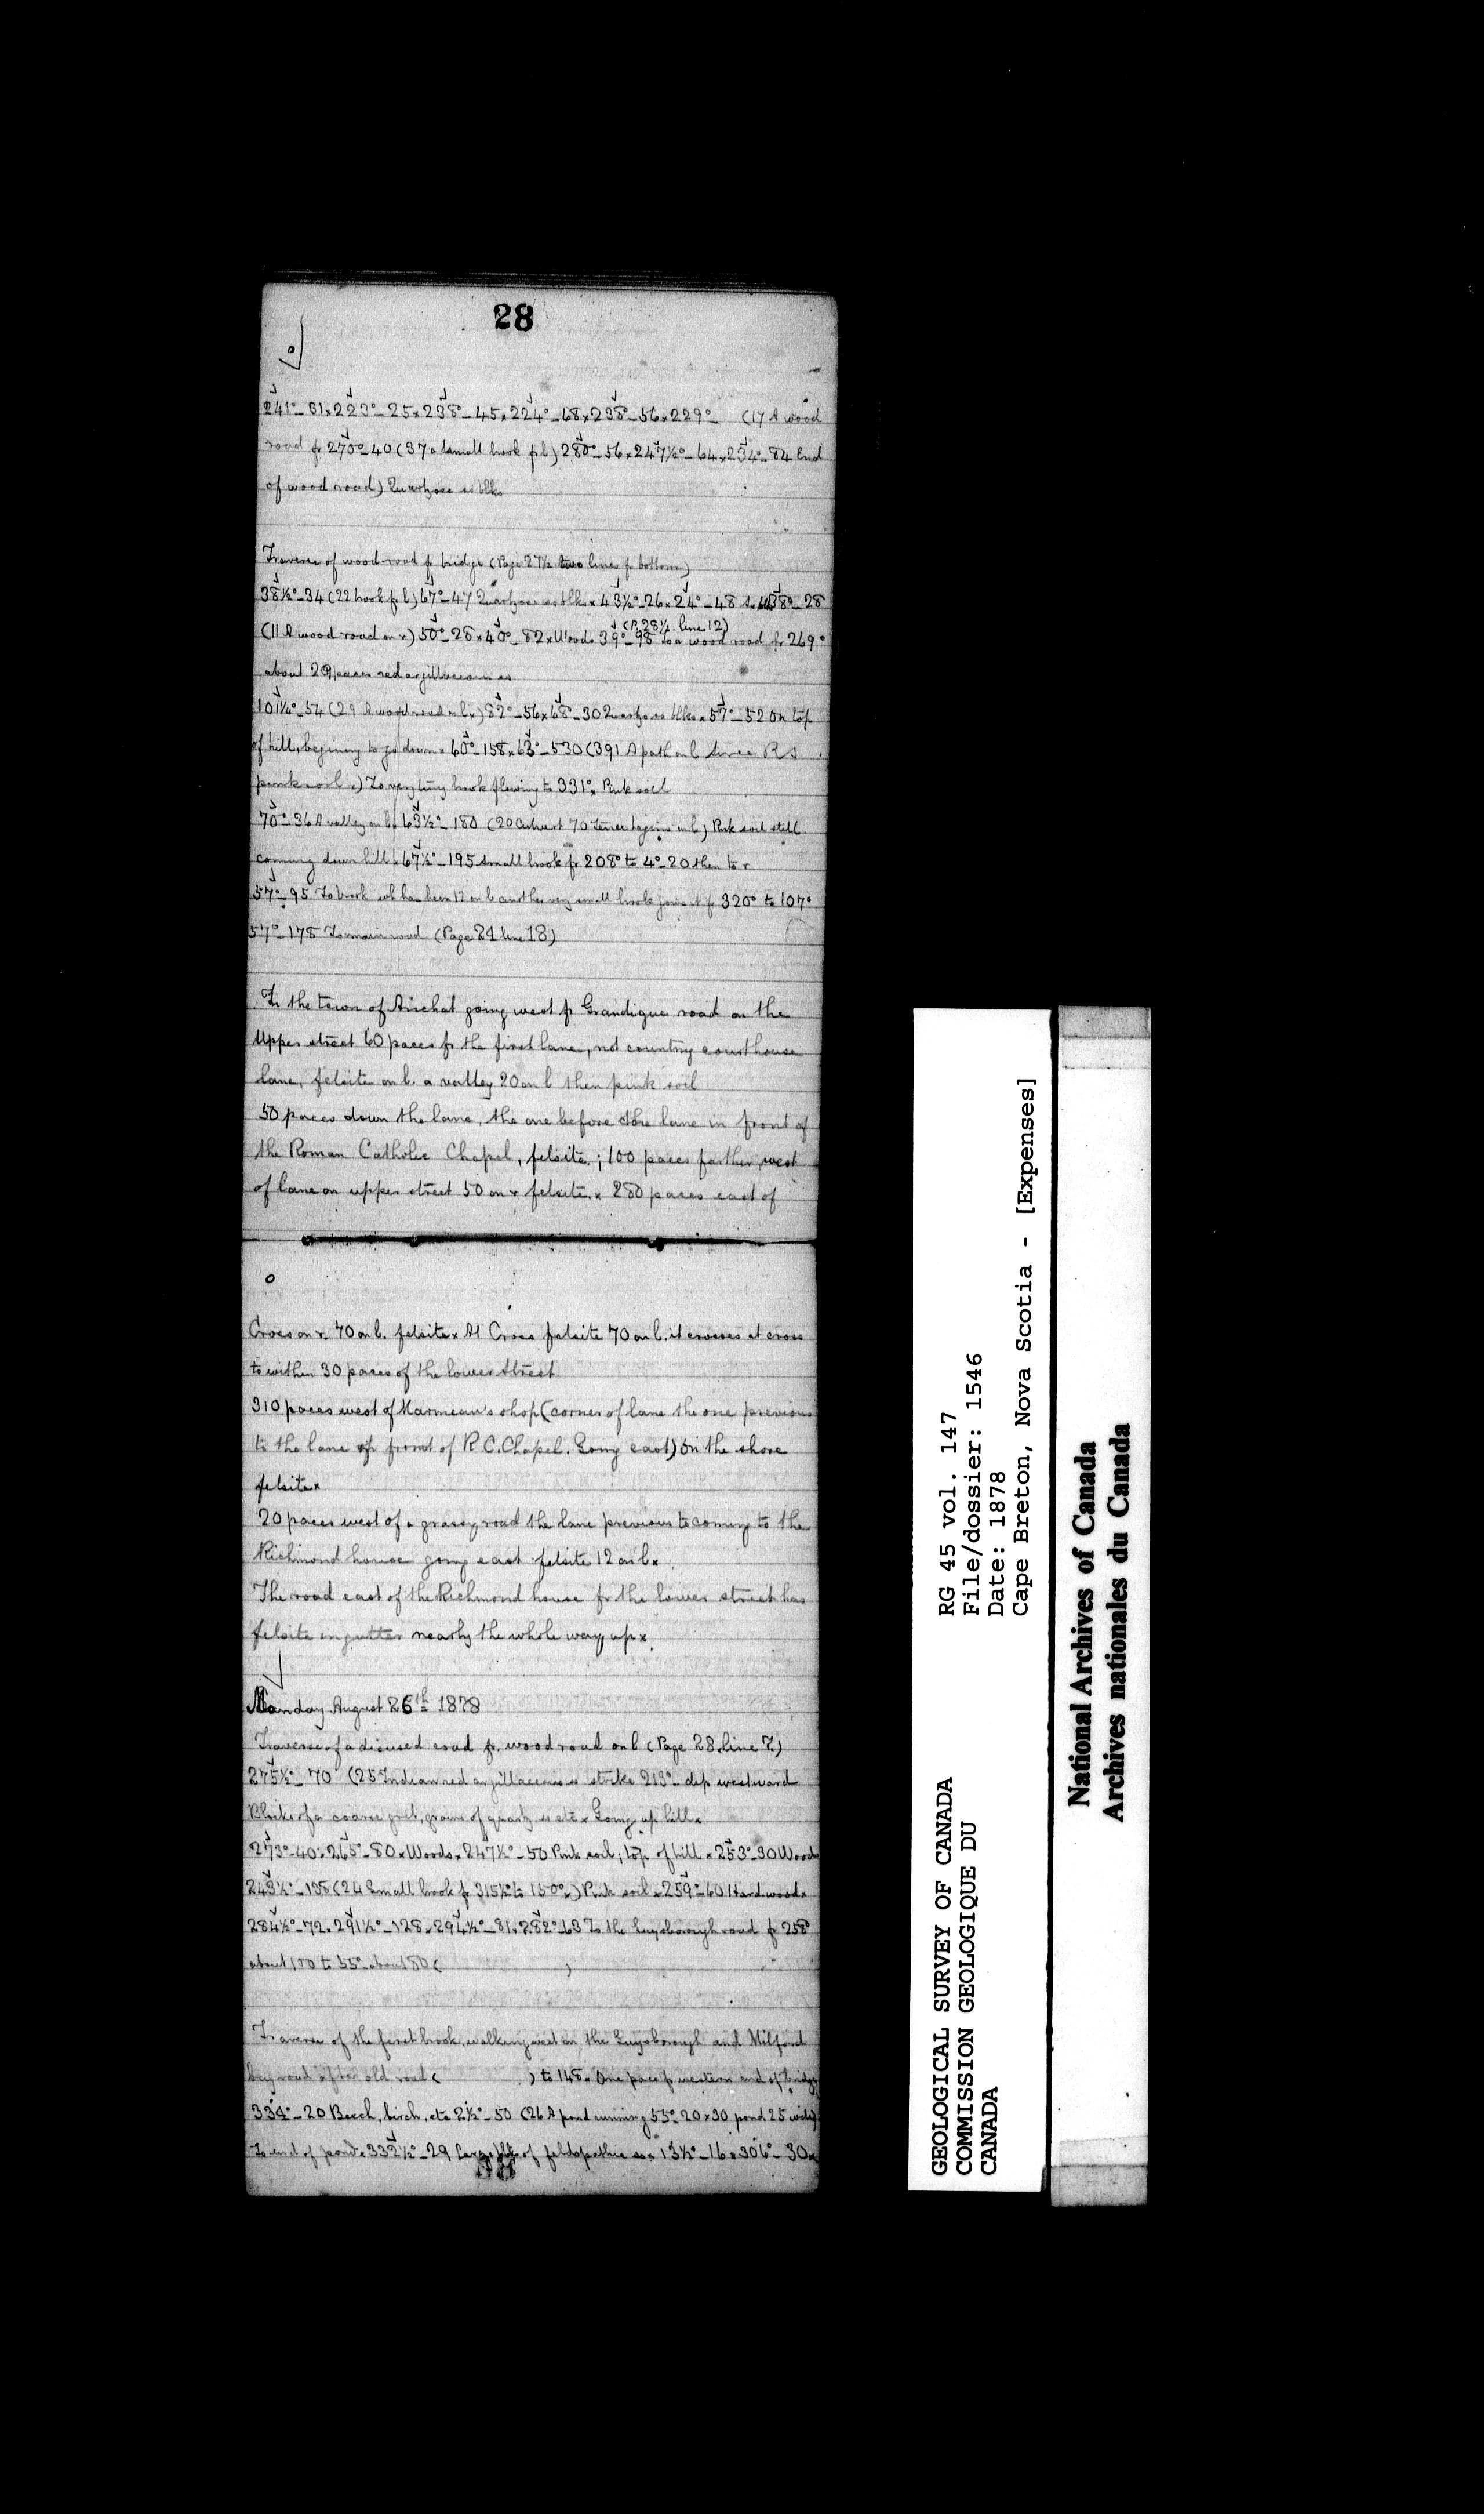 28
241°_31x223°_25x238°_45x224°_68x238°_56x229°_ (17 A wood
road fr 270°_40 (37 a small brook fr l) 280°_56x247½°_64x234°_84 End
of wood road) Quartzose ss blks
Traverse of wood road fr bridge (Page 27½ two lines fr bottom)
38½°_34 (22 brook fr l) 67°_47 Quartzose ss blks x 43½°_26x24°_48 38°_28
(P. 28½ line 12)
(11 A wood road on r) 50°_28x40°_82x Woods 39°_98 To a wood road fr 269°
about 20 paces red argillaceous ss
101½°_54 (29 A wood road on l x) 82°_56x68°_30 Quartzose ss blks x 57°_52 On top
of hill, begining to go down x 60°_158x63°_530 (391 A path on l
pink soil x) To very tiny brook flowing to 331° x Pink soil
70°_36 A valley on l x 63½°_180 (20 Culvert 70 Fence begins on l) Pink soil still
coming down hill x 67½°_195 small brook fr 208° to 4°_20 then to r
57°_95 To brook wh has been 12 on l another very small brook joins it fr 320° to 107°
57°_178 To main road (Page 24 line 18)
In the town of Arichat going west fr Grandique road on the
Upper street 60 paces fr the first lane, not country courthouse
lane, felsite on l. a valley 20 on l then pink soil
50 paces down the lane, the one before the lane in front of
the Roman Catholic Chapel, felsite.; 100 paces farther west
of lane on upper street 50 on r felsite. x 280 paces east of
Cross on r. 70 on l. felsite x At Cross felsite 70 on l. it crosses at cross
to within 30 paces of the lower street
310 paces west of Marmeau's shop (corner of lane the one previous
to the lane fr front of R.C. Chapel. Going east) On the shore
felsite x
20 paces west of a grassy road the lane previous to coming to the
Richmond house going east felsite 12 on l x
The road east of the Richmond house fr the lower street has
felsite in gutter nearly the whole way up x
Monday August 26th 1878
Traverse of a disused road fr. wood road on l (Page 28. line 7.)
275½°_70 (25 Indian red argillaceous ss strike 213°_dip westward
Blocks of a coarse grit, grains of quartz ss etc x Going up hill x
273°_40x265°_80 x Woods x 247½°_50 Pink soil; top of hill x 253°_30 Woods
243½°_135 (24 Small brook fr 315½° to 150° x) Pink soil x 259°_60 Hardwoods
284½°_72x291½°_128x294½°_81x282°_63 To the Guysborough road fr 258
about 100 to 55° about 80 ( )
Traverse of the first brook, walking west on the Guysborough and Milford
Haven road after old road ( ) to 148 x One pace fr western end of bridge
334°_20 Beech, birch, etc 2½°_50 (26 A pond running 55° 20x30 pond 25 wide)
To end of pond x 332½°_29 Large blk of feldspathic ss x 13½°_16x306°_30x
GEOLOGICAL SURVEY OF CANADA
COMMISSION GEOLOGIQUE DU
CANADA
RG 45 vol. 147
File/dossier: 1546
Date: 1878
Cape Breton, Nova Scotia - [Expenses]
National Archives of Canada
Archives nationales du Canada